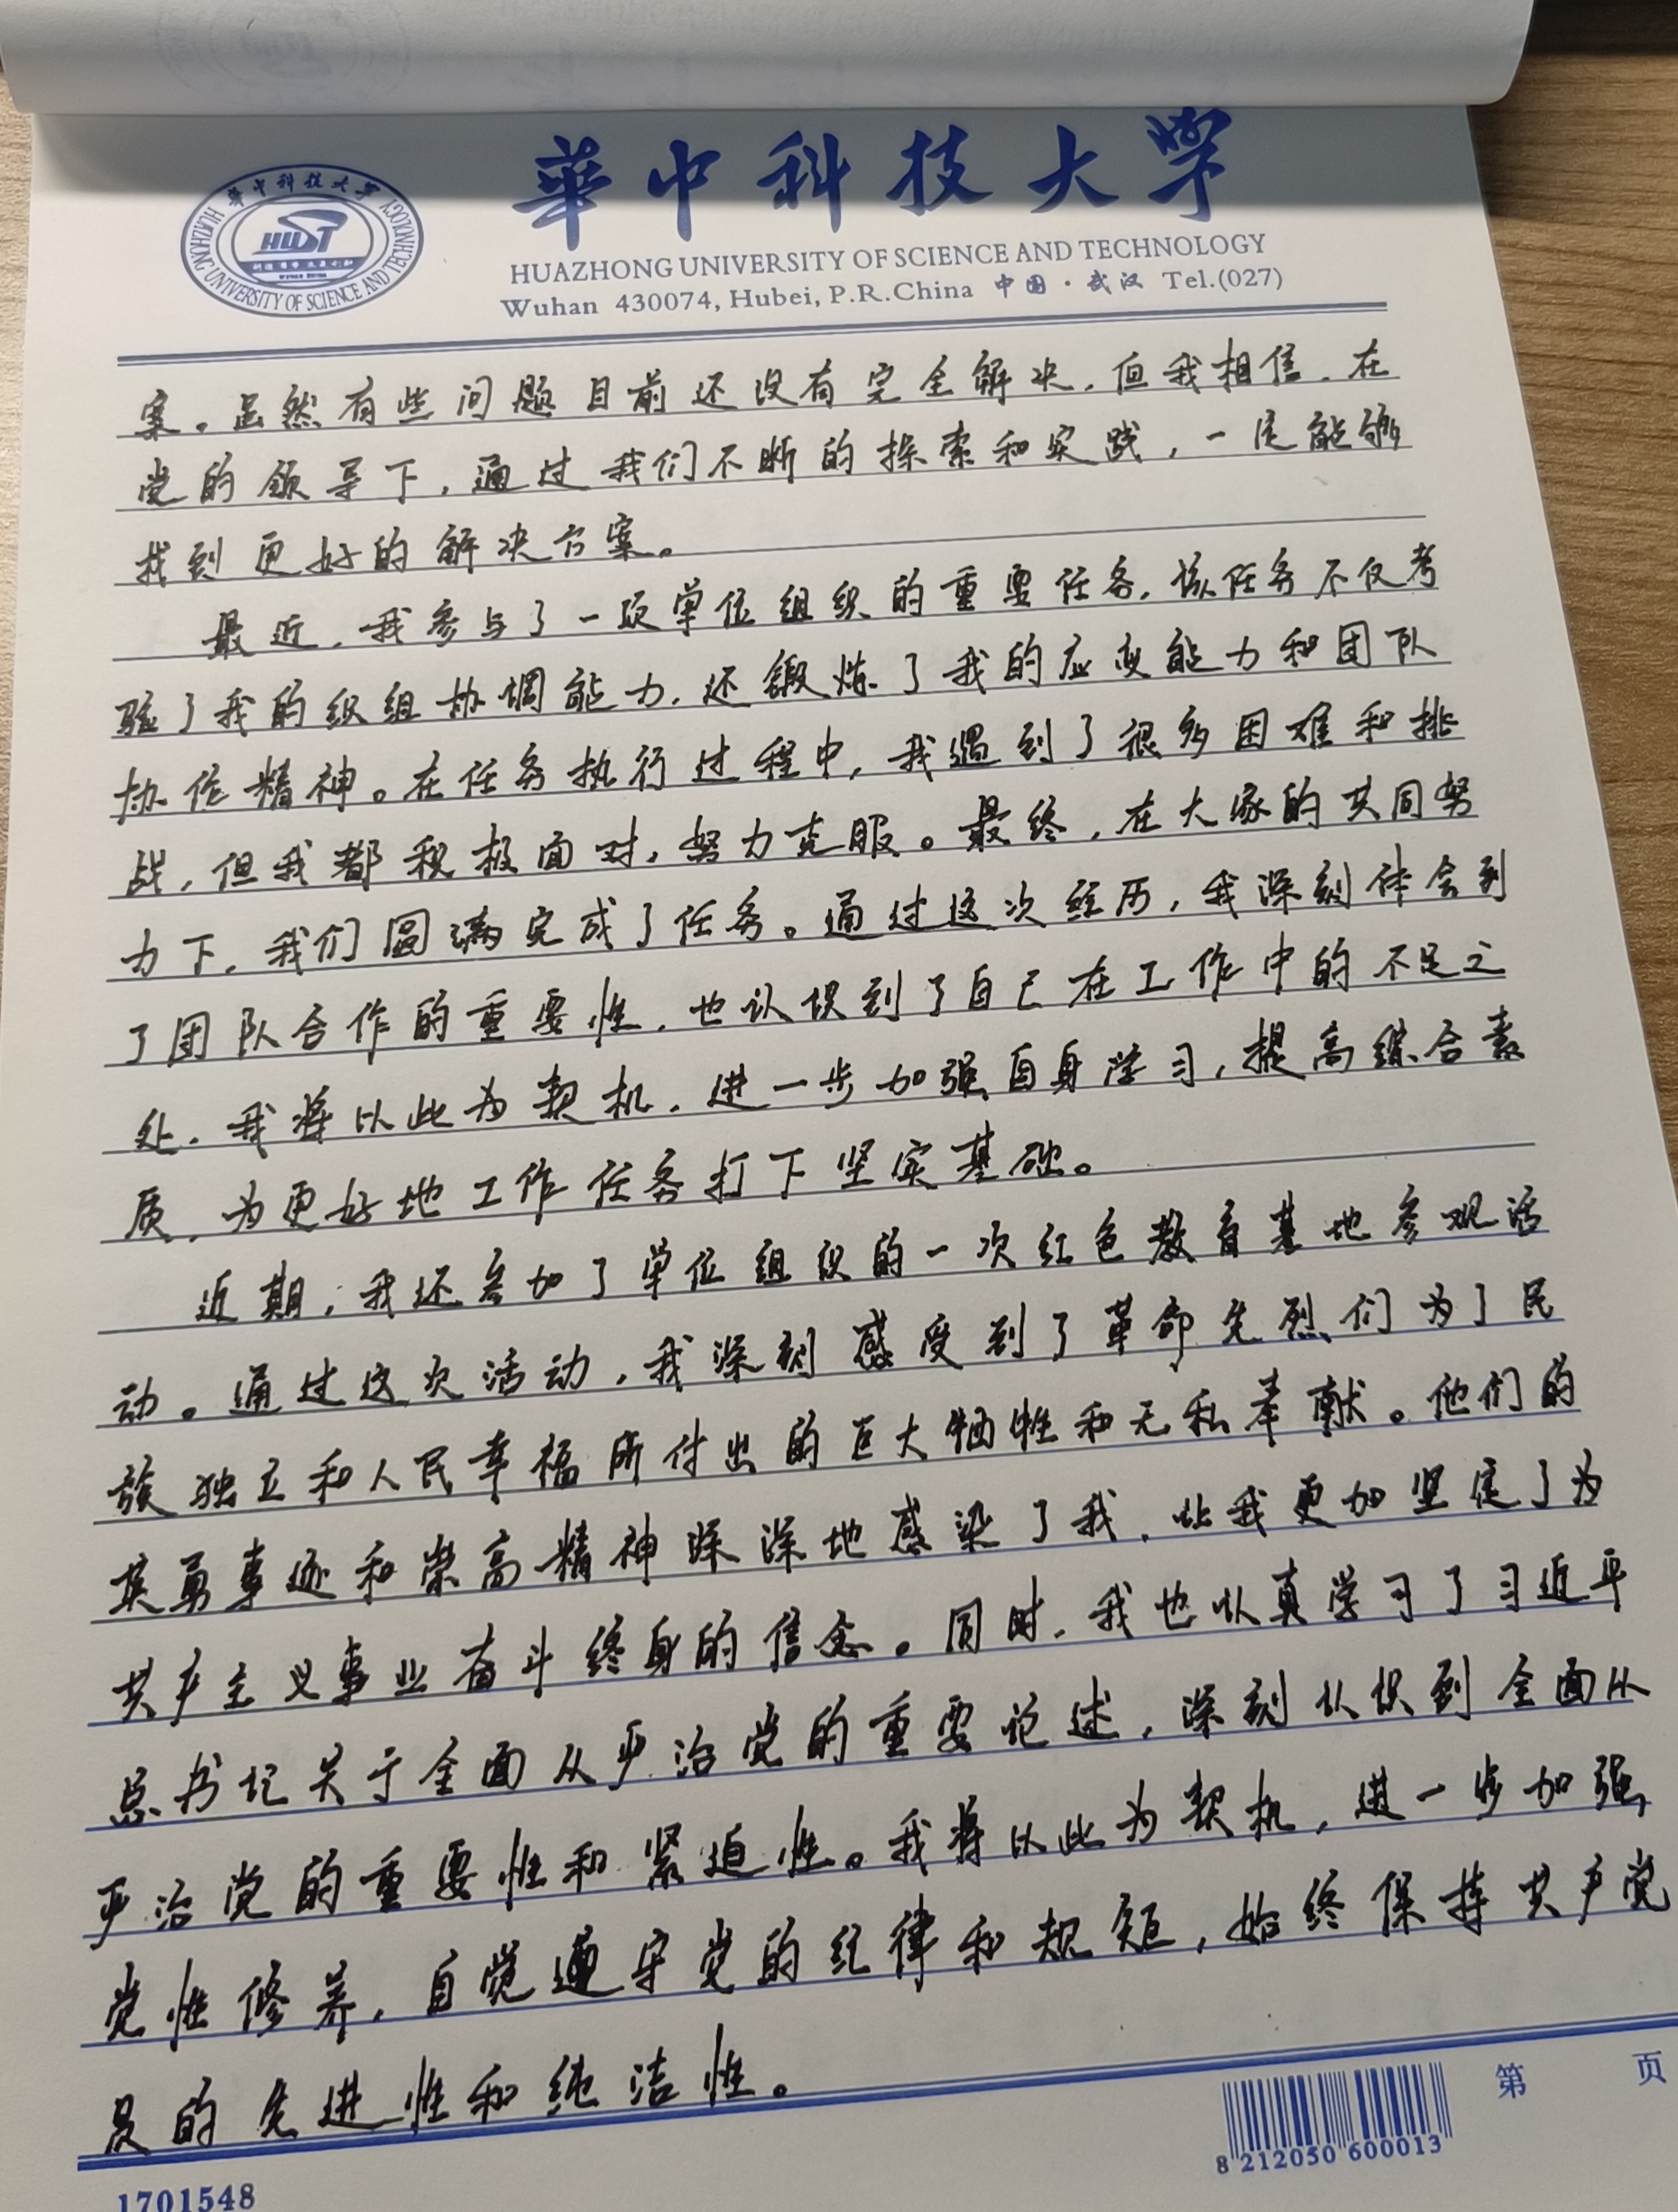 華中科技大学
HUAZHONG UNIVERSITY OF SCIENCE AND TECHNOLOGY
Wuhan 430074, Hubei, P.R.China 中国·武汉 Tel.(027)
華中科技大学
HUAZHONG UNIVERSITY OF SCIENCE AND TECHNOLOGY
HUST
案。虽然有些问题目前还没有完全解决，但我相信，在
党的领导下，通过我们不断的探索和实践，一定能够
找到更好的解决方案。
最近，我参与了一项单位组织的重要任务，该任务不仅考
验了我的织组协调能力，还锻炼了我的应变能力和团队
协作精神。在任务执行过程中，我遇到了很多困难和挑
战，但我都积极面对，努力克服。最终，在大家的共同努
力下，我们圆满完成了任务。通过这次经历，我深刻体会到
了团队合作的重要性，也认识到了自己在工作中的不足之
处，我将以此为契机，进一步加强自身学习，提高综合素
质，为更好地工作任务打下坚实基础。
近期，我还参加了单位组织的一次红色教育基地参观活
动。通过这次活动，我深刻感受到了革命先烈们为了民
族独立和人民幸福所付出的巨大牺牲和无私奉献。他们的
英勇事迹和崇高精神深深地感染了我，让我更加坚定了为
共产主义事业奋斗终身的信念。同时，我也认真学习了习近平
总书记关于全面从严治党的重要论述，深刻认识到全面从
严治党的重要性和紧迫性。我将以此为契机，进一步加强
党性修养，自觉遵守党的纪律和规矩，始终保持共产党
员的先进性和纯洁性。
第 页
8 212050 600013
1701548